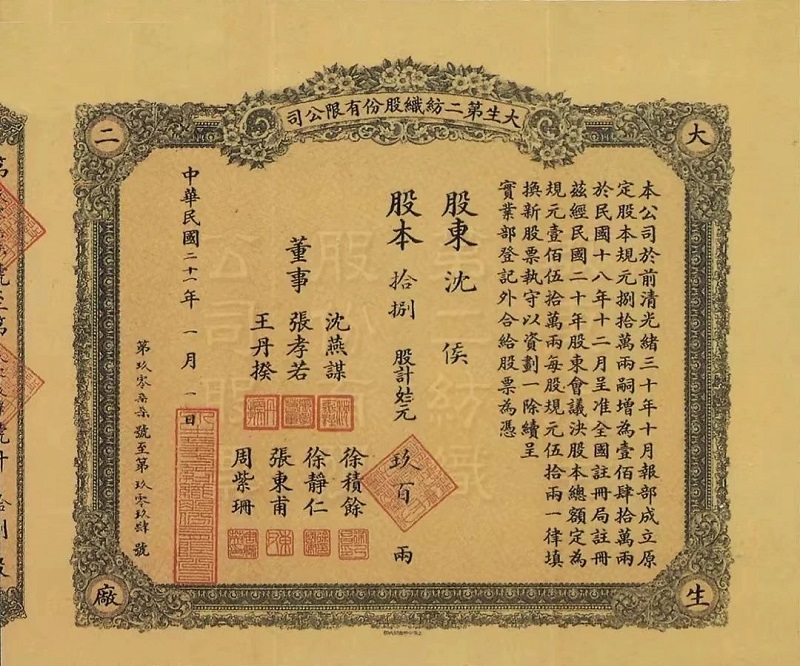 大生第二紡織股份有限公司
大
生
二
廠
本公司於前清光緒三十年十月報部成立原
定股本規元捌拾萬兩嗣增為壹佰肆拾萬兩
於民國十八年十二月呈准全國註冊局註冊
茲經民國二十年股東會議決股本總額定為
規元壹佰伍拾萬兩每股規元伍拾兩一律填
換新股票執守以資劃一除續呈
實業部登記外合給股票為憑
股東 沈 侯
股本 拾捌 股計 元 玖百 兩
董事
沈燕謀
張孝若
王丹揆
徐積餘
徐靜仁
張東甫
周紫珊
中華民國二十一年一月一日
第玖零柒柒號至第玖零玖肆號